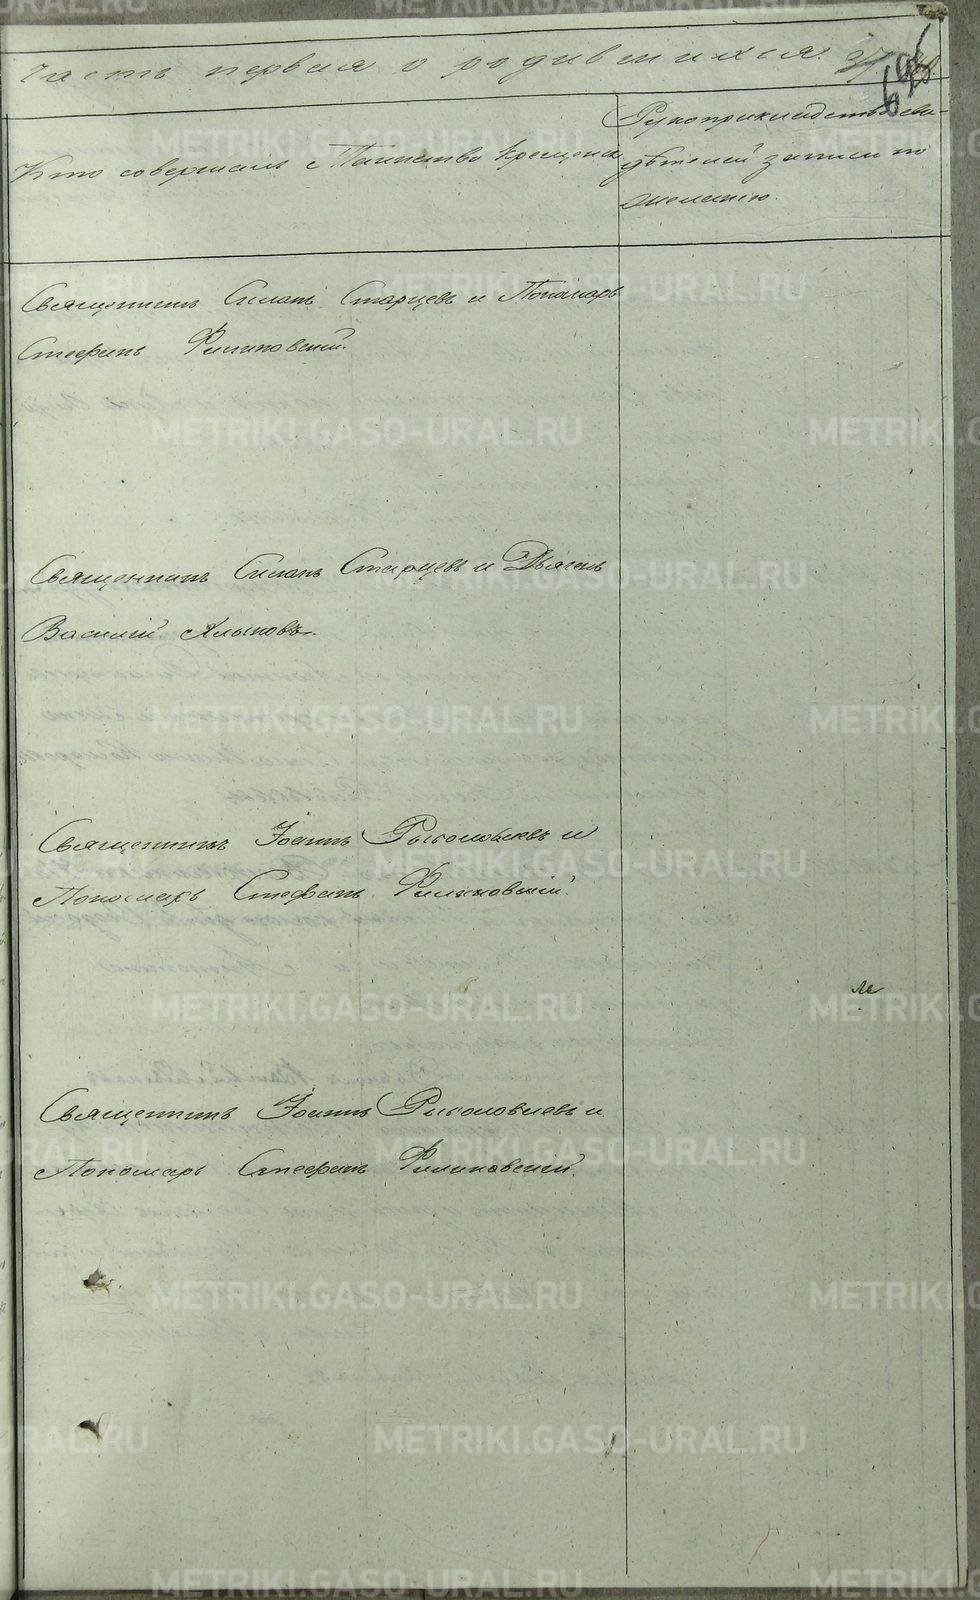 Часть первая о родившихся.
Кто совершалъ Таинство крещенія
Рукоприкладство сви-
дѣтелей записи по
желанію.
Священникъ Силанъ Старцевъ и Пономарь
Стефанъ Филиновскій.
Священникъ Силанъ Старцевъ и Дьяконъ
Василій Алыповъ.
Священникъ Іоаннъ Рыболовлевъ и
Пономарь Стефанъ Филиновскій.
Священникъ Іоаннъ Рыболовлевъ и
Пономарь Стефанъ Филиновскій.
METRIKI.GASO-URAL.RU